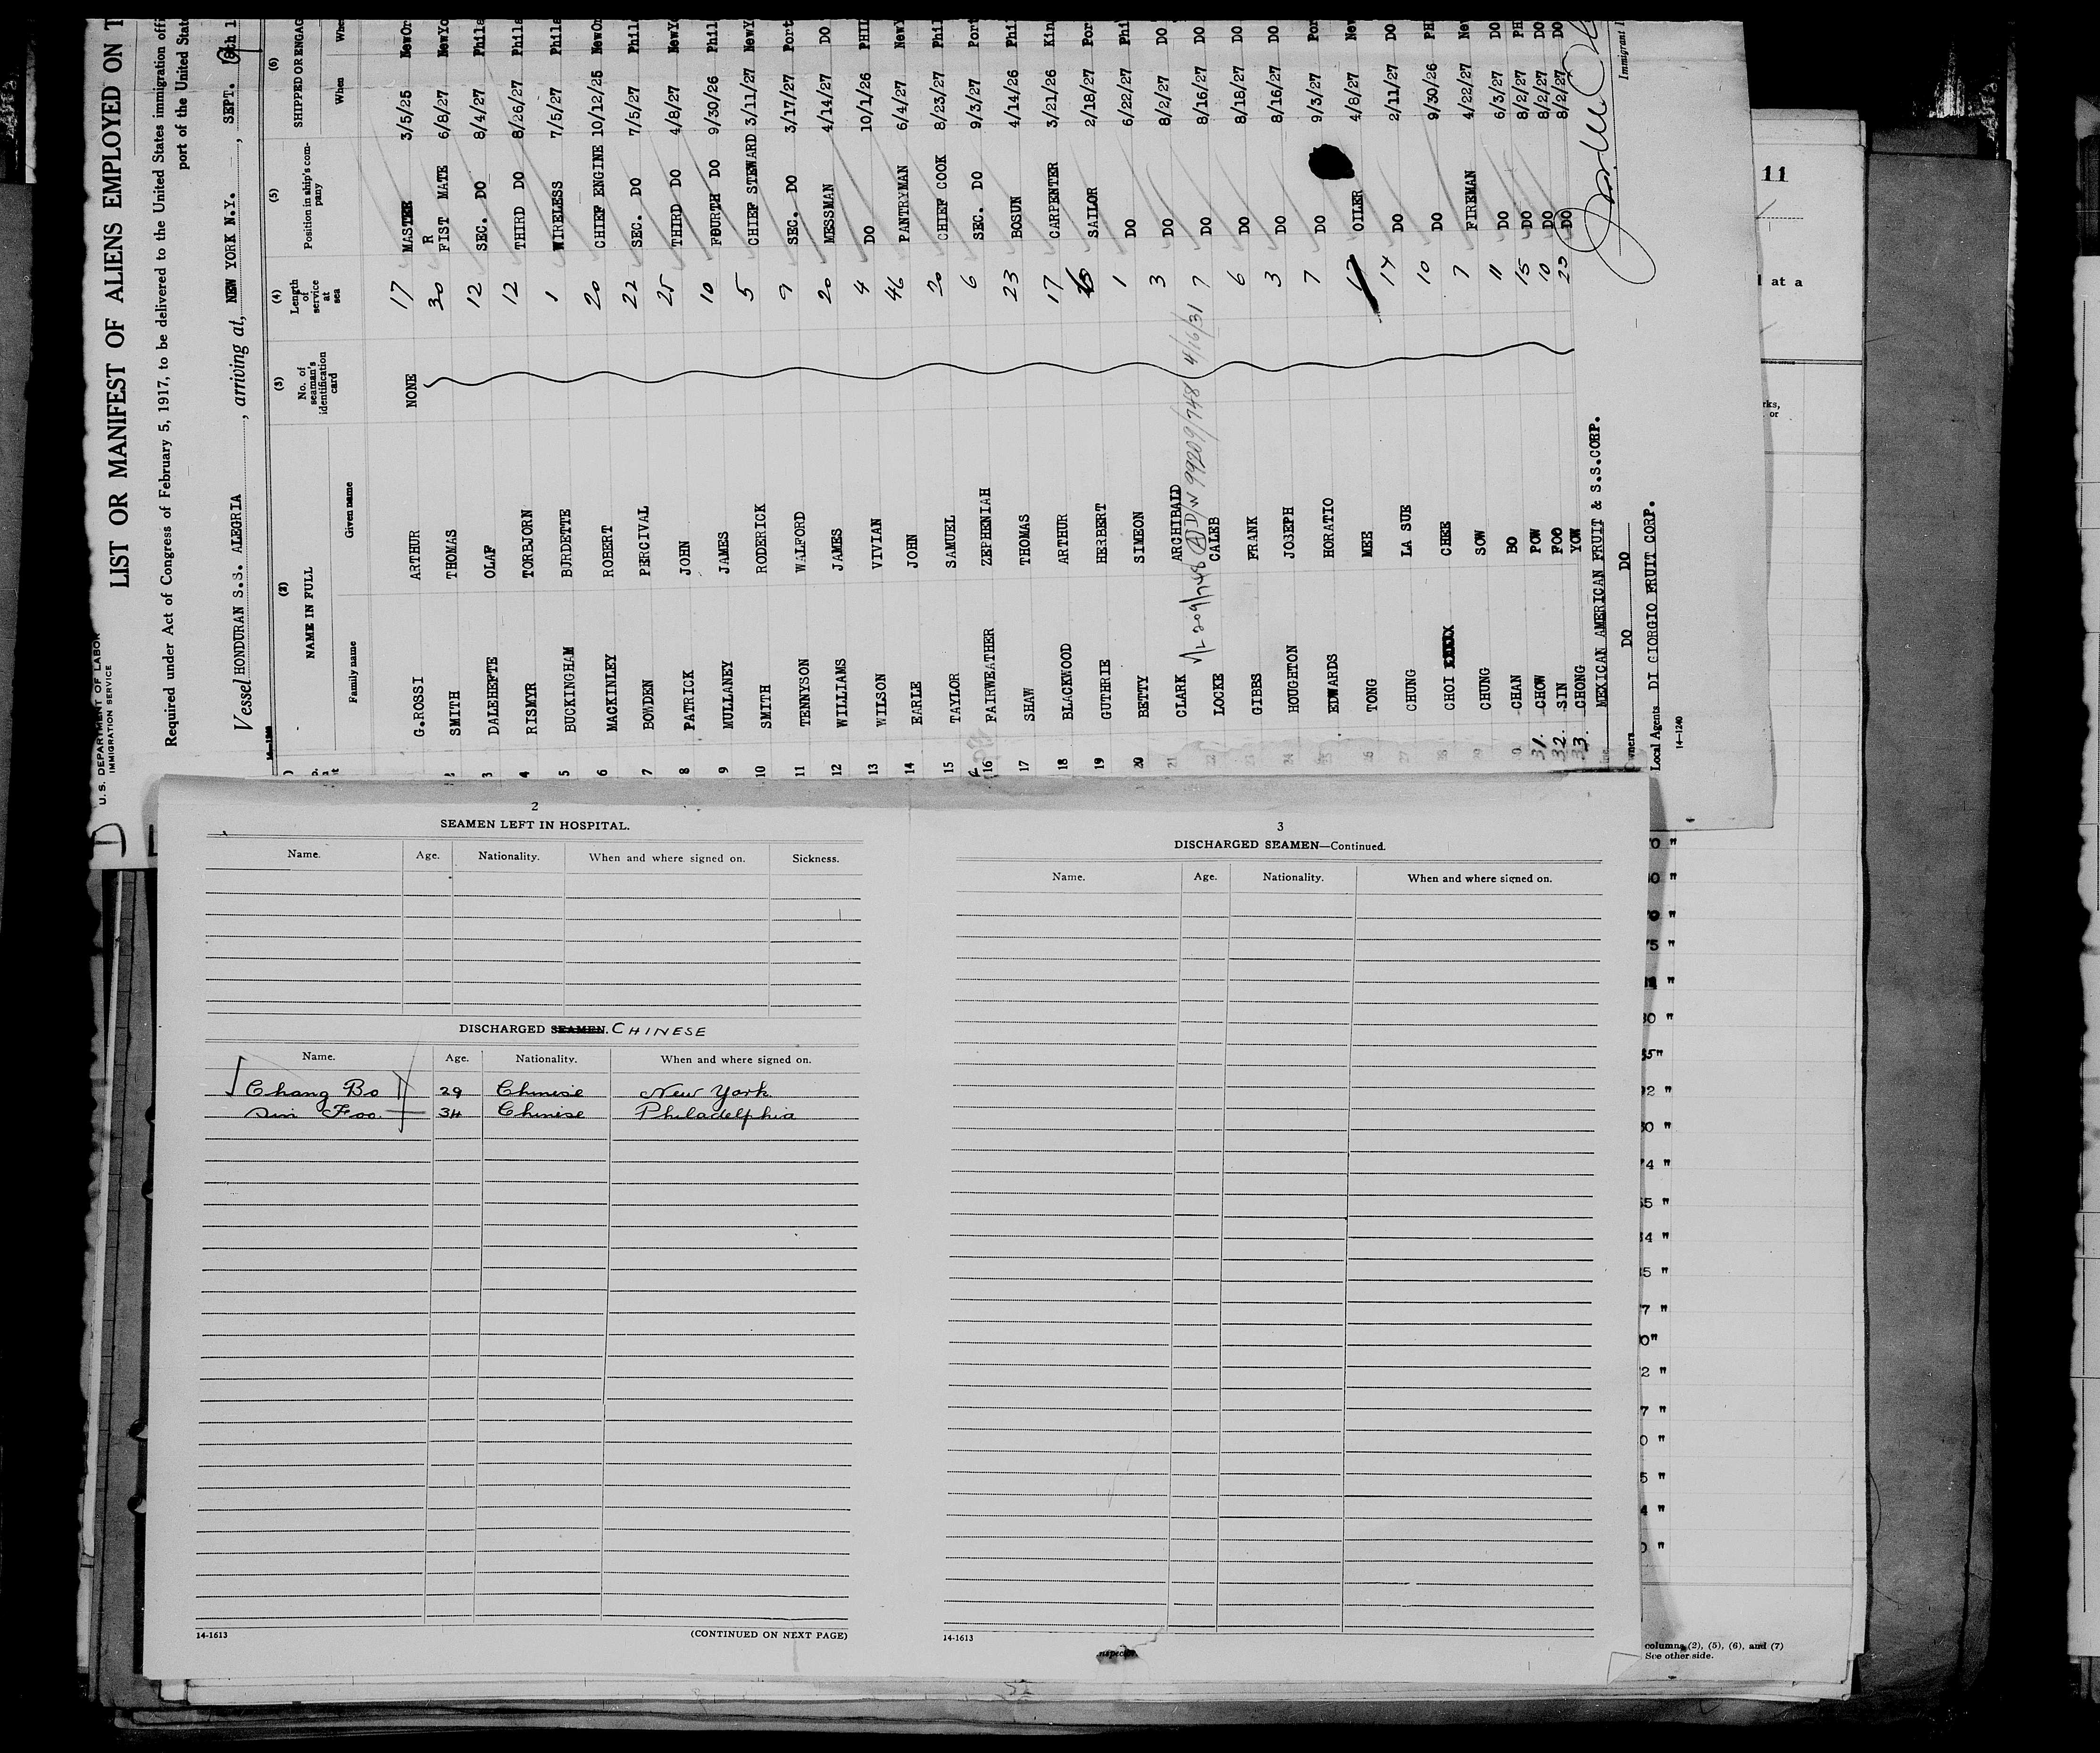 U. S. DEPARTMENT OF LABOR
IMMIGRATION SERVICE
LIST OR MANIFEST OF ALIENS EMPLOYED ON T
Required under Act of Congress of February 5, 1917, to be delivered to the United States immigration offi
port of the United Stat
Vessel HONDURAN S.S. ALEGRIA, arriving at, NEW YORK N.Y., SEPT.
(2) (3) (4) (5) (6)
NAME IN FULL No. of seaman's identification card Length of service at sea Position in ship's company SHIPPED OR ENGAG
Family name Given name When Whe
G.ROSSI ARTHUR NONE 17 MASTER 3/5/25 NewOr
SMITH THOMAS 30 FIST MATE 6/8/27 NewYo
3 DALEHEFTE OLAF 12 SEC. DO 8/4/27 Phila
4 RISMYR TORBJORN 12 THIRD DO 8/26/27 Phila
5 BUCKINGHAM BURDETTE 1 WIRELESS 7/5/27 Phila
6 MACKINLEY ROBERT 20 CHIEF ENGINE 10/12/25 NewOr
7 BOWDEN PERCIVAL 22 SEC. DO 7/5/27 Phil
8 PATRICK JOHN 25 THIRD DO 4/8/27 NewY
9 MULLANEY JAMES 10 FOURTH DO 9/30/26 Phil
10 SMITH RODERICK 5 CHIEF STEWARD 3/11/27 NewY
11 TENNYSON WALFORD 9 SEC. DO 3/17/27 Port
12 WILLIAMS JAMES 20 MESSMAN 4/14/27 DO
13 WILSON VIVIAN 4 DO 10/1/26 PHIL
14 EARLE JOHN 46 PANTRYMAN 6/4/27 NewY
15 TAYLOR SAMUEL 20 CHIEF COOK 8/23/27 Phil
16 FAIRWEATHER ZEPHENIAH 6 SEC. DO 9/3/27 Port
17 SHAW THOMAS 23 BOSUN 4/14/26 Phi
18 BLACKWOOD ARTHUR 17 CARPENTER 3/21/26 Kin
19 GUTHRIE HERBERT SAILOR 2/18/27 Por
20 BETTY SIMEON 1 DO 6/22/27 Phi
21 CLARK ARCHIBALD 3 DO 8/2/27 DO
V/L 209/748 A D/W 99209/748 4/16/31
22 LOCKE CALEB 7 DO 8/16/27 DO
23 GIBBS FRANK 6 DO 8/18/27 DO
24 HOUGHTON JOSEPH 3 DO 8/16/27 DO
25 EDWARDS HORATIO 7 DO 9/3/27 Por
26 TONG MEE OILER 4/8/27 Ne
27 CHUNG LA SUE 14 DO 2/11/27 DO
28 CHOI CHEE 10 DO 9/30/26 PH
29 CHUNG SOW 7 FIREMAN 4/22/27 Ne
30 CHAN BO 11 DO 6/3/27 DO
31. CHOW POW 15 DO 8/2/27 PH
32. SIN FOO 10 DO 8/2/27 DO
33. CHONG YOW 20 DO 8/2/27 DO
MEXICAN AMERICAN FRUIT & S.S.CORP.
Owners DO DO
Local Agents DI GIORGIO FRUIT CORP.
Immigrant I
14-1240
11
at a
rks,
or
2
SEAMEN LEFT IN HOSPITAL.
Name. Age. Nationality. When and where signed on. Sickness.
DISCHARGED SEAMEN. CHINESE
Name. Age. Nationality. When and where signed on.
Chang Bo 29 Chinese New York
Sin Foo 34 Chinese Philadelphia
14-1613 (CONTINUED ON NEXT PAGE)
3
DISCHARGED SEAMEN—Continued.
Name. Age. Nationality. When and where signed on.
14-1613
nspector
columns (2), (5), (6), and (7)
See other side.